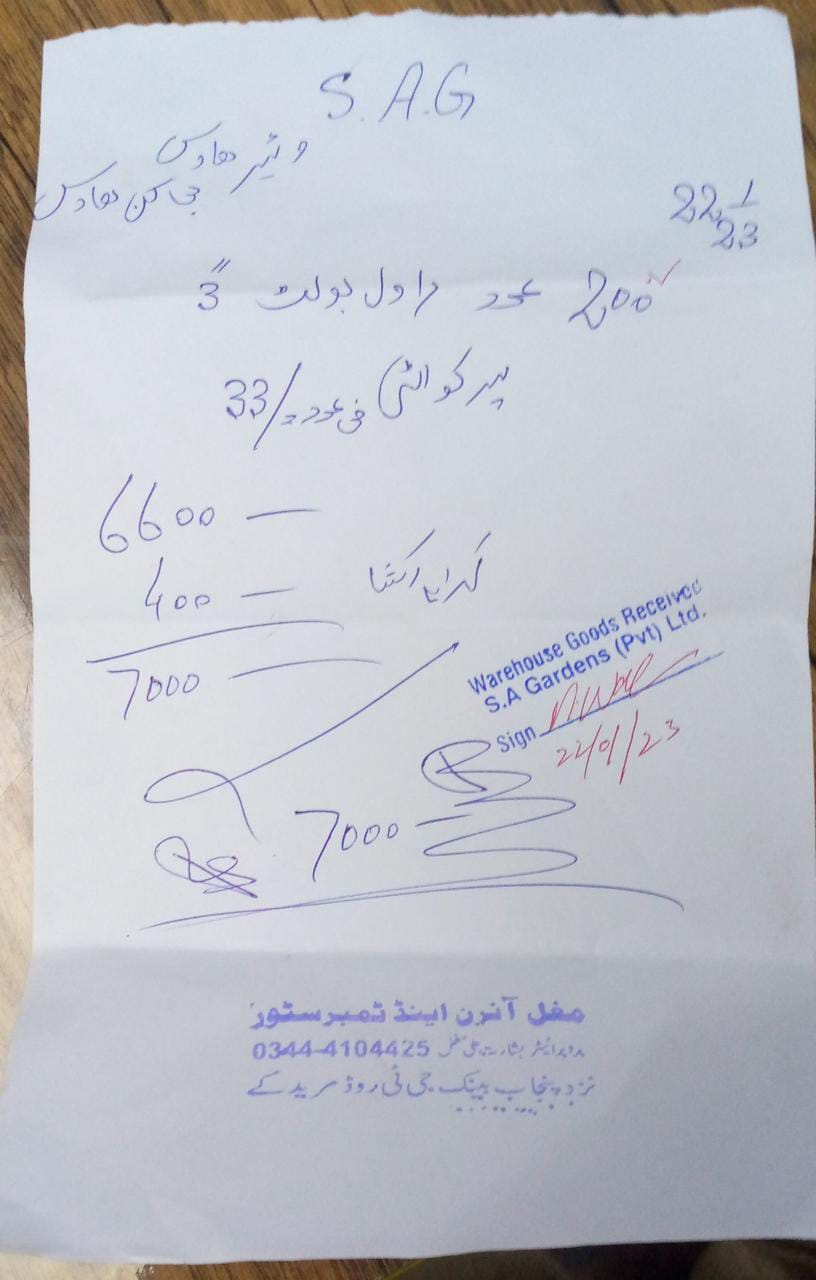 S.A.G
وئیر ھاوس
22 1/23
200 عدد راول بولٹ 3"
سپر کوالٹی فی عدد =/33
6600 —
400 — کرایہ رکشا
7000 —
Warehouse Goods Received
S.A Gardens (Pvt) Ltd.
Sign
22/01/23
7000 —
مغل آئرن اینڈ ٹمبر سٹور
پروپرائیٹر بشارت علی مغل 0344-4104425
نزد پنجاب بینک جی ٹی روڈ مریدکے